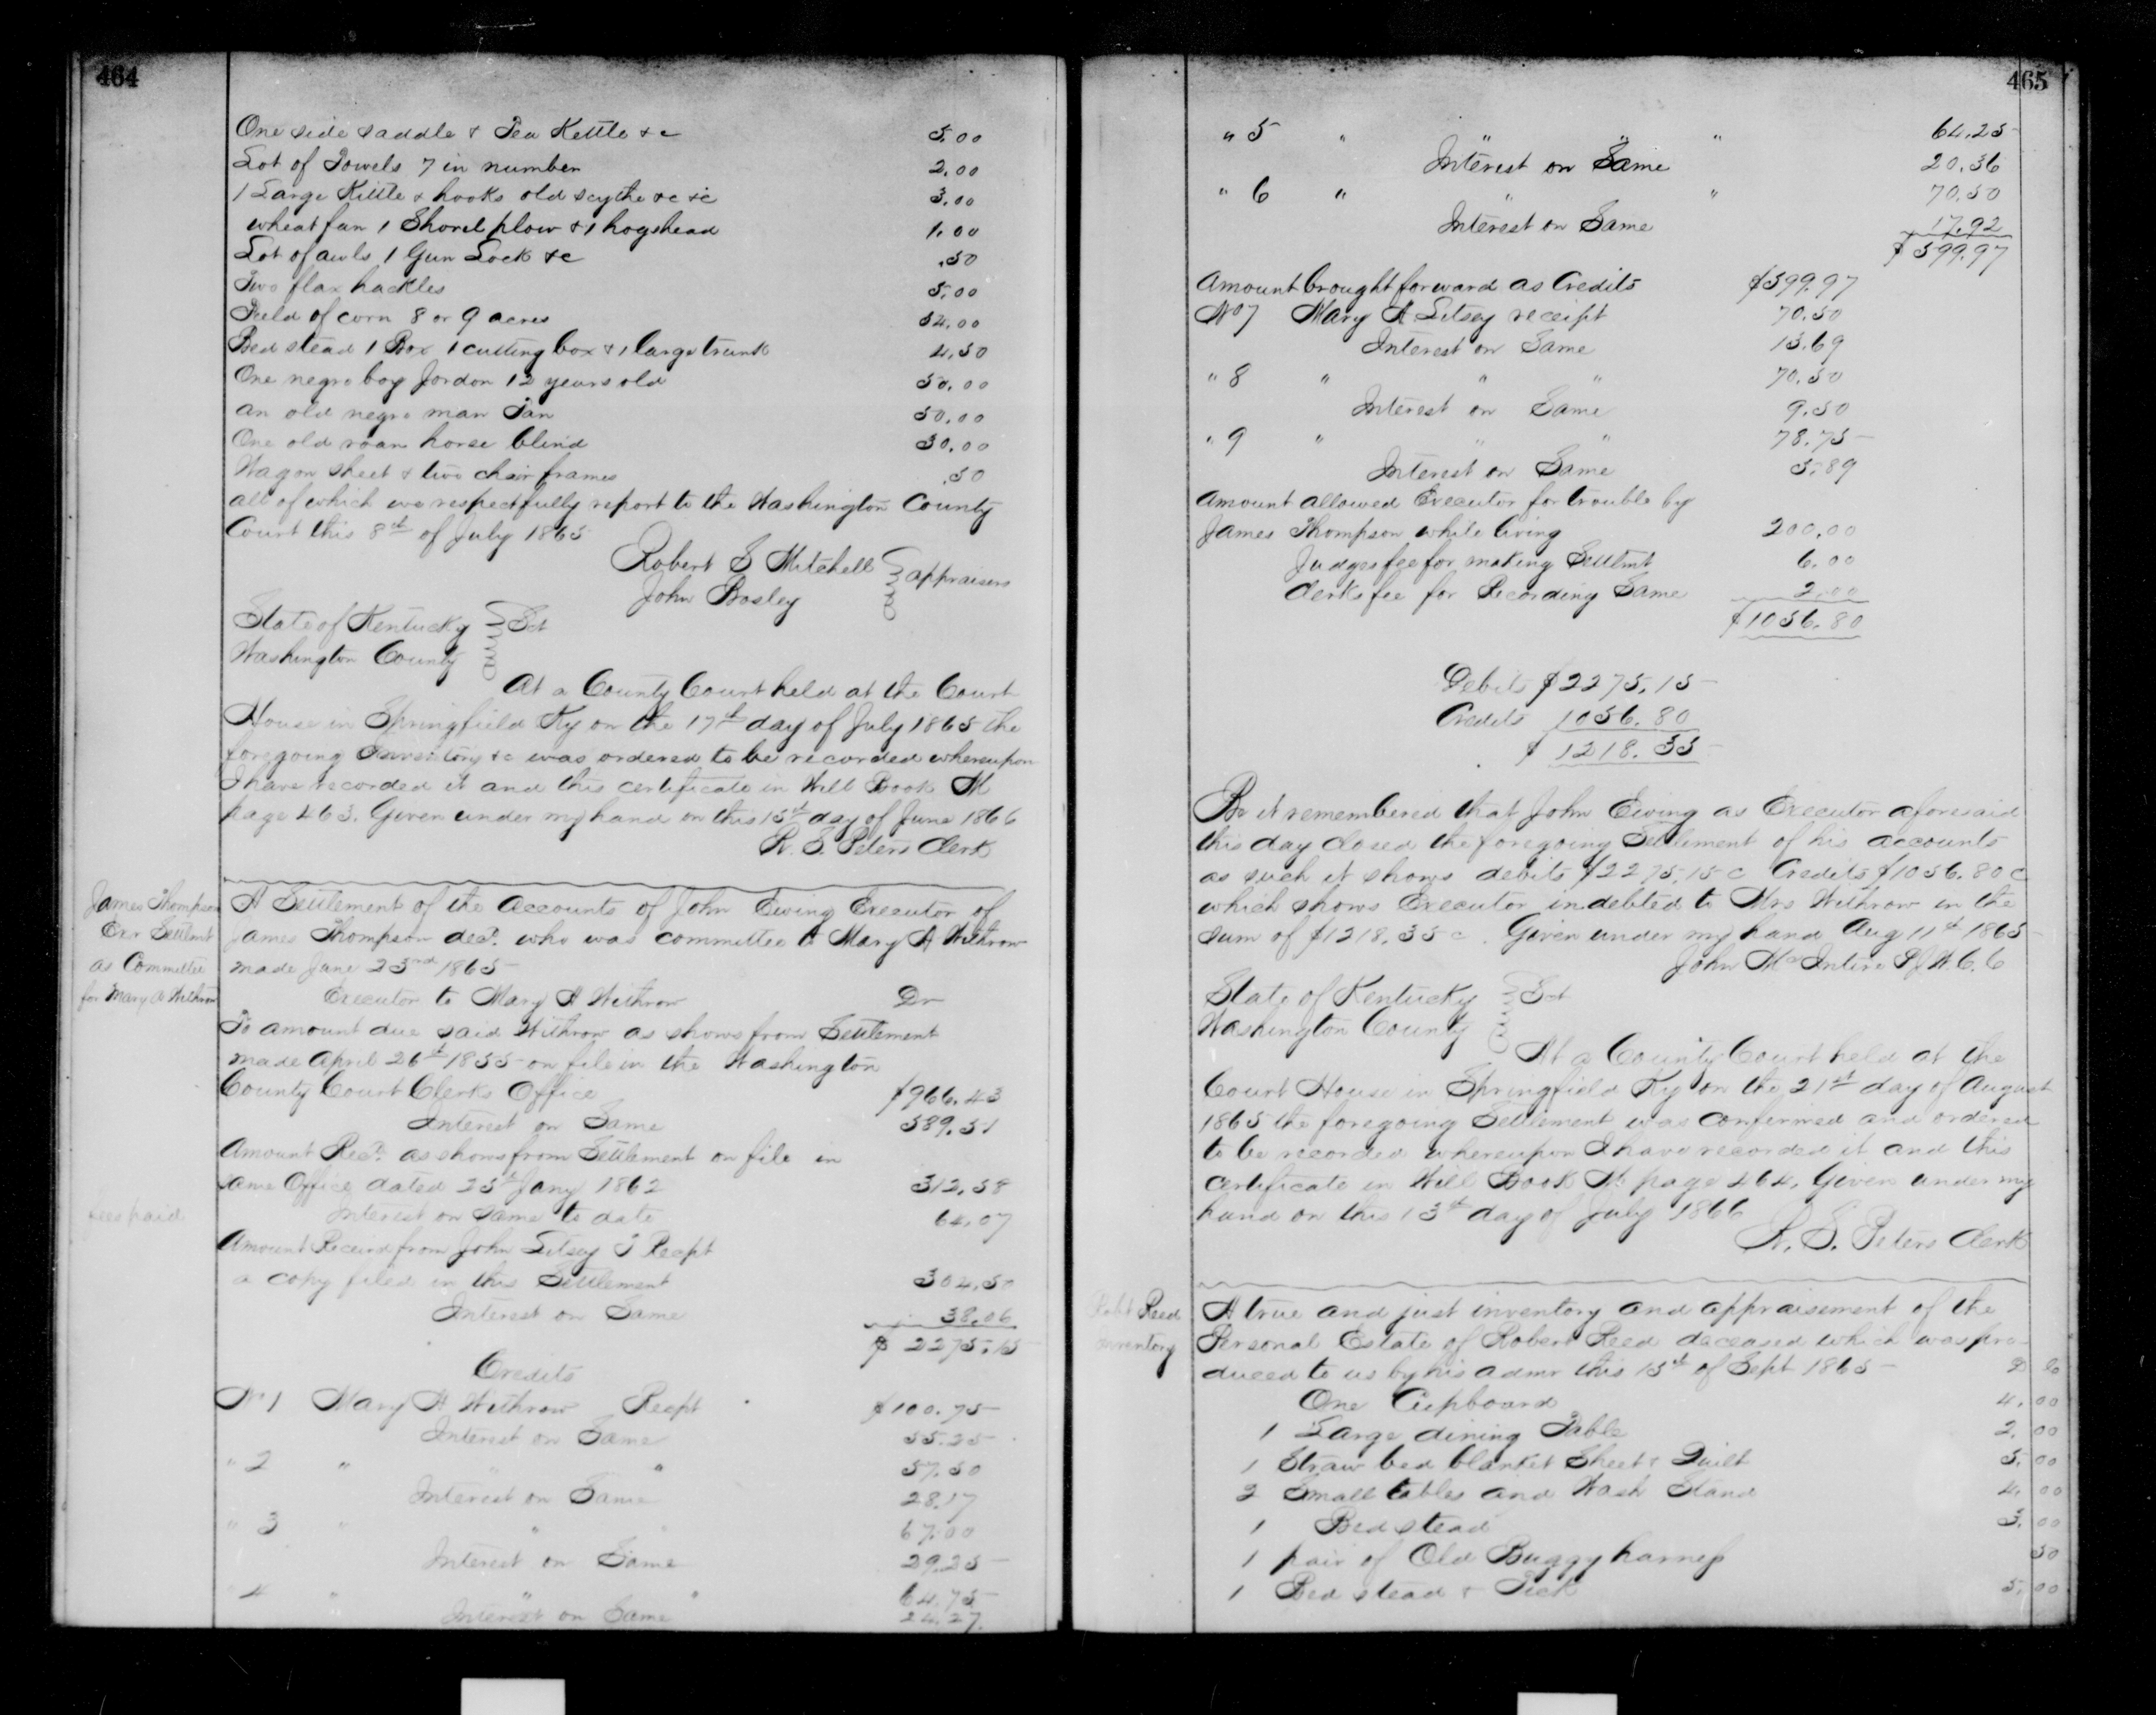 464
One side saddle & Tea Kettle &c 5.00
Lot of Towels 7 in number 2.00
1 Large Kittle & hooks old scythe &c &c 3.00
wheat fan 1 Shovel plow & 1 hogshead 1.00
Lot of awls 1 Gun Lock &c .50
Two flax hackles 5.00
Field of corn 8 or 9 acres 54.00
Bed stead 1 Box 1 cutting box & 1 large trunk 4.50
One negro boy Jordon 12 years old 50.00
an old negro man Tan 50.00
One old roan horse blind 30.00
Wagon sheet & two chair frames .50
all of which we respectfully report to the Washington County
Court this 8th of July 1865
Robert S Mitchell
John Bosley
appraisers
State of Kentucky Sct
Washington County
At a County Court held at the Court
House in Springfield Ky on the 17th day of July 1865 the
foregoing Inventory &c was ordered to be recorded whereupon
I have recorded it and this certificate in Will Book M
page 463. Given under my hand on this 15th day of June 1866
R. S. Peters Clerk
James Thompson
Exr Settlmt
as Committee
for Mary A Withrow
A Settlement of the Accounts of John Ewing Executor of
James Thompson decd. who was committee to Mary A Withrow
made June 23rd 1865
Executor to Mary A Withrow Dr
To amount due said Withrow as shows from Settlement
made April 26th 1855 on file in the Washington
County Court Clerks Office $966.43
Interest on Same 589.51
Amount Recd. as shows from Settlement on file in
same Office dated 25th Jany 1862 312.58
Interest on same to date 64.07
fees paid
Amount Receivd from John Litsey Recpt
a copy filed in this Settlement 304.50
Interest on Same 38.06
$2275.15
Credits
No 1 Mary A Withrow Recpt $100.75
Interest on Same 55.25
" 2 " " " 57.50
Interest on Same 28.17
" 3 " " " 67.00
Interest on Same 29.25
" 4 " " " 64.75
Interest on Same 24.27
465
" 5 " " " " 64.25
Interest on Same 20.36
" 6 " " " 70.50
Interest on Same 17.92
$599.97
Amount brought forward as Credits $599.97
No 7 Mary A Litsey receipt 70.50
Interest on Same 13.69
" 8 " " " 70.50
Interest on Same 9.50
" 9 " " " 78.75
Interest on Same 5.89
Amount allowed Executor for trouble by
James Thompson while living 200.00
Judges fee for making Settlmt 6.00
Clerks fee for Recording Same 2.00
$1056.80
Debits $2275.15
Credits 1056.80
$1218.35
Be it remembered that John Ewing as Executor aforesaid
this day closed the foregoing Settlement of his accounts
as such it shows debits $2275.15c Credits $1056.80c
which shows Executor indebted to Mrs Withrow in the
sum of $1218.35c. Given under my hand Aug 11th 1865
John McIntire P J W. C. C
State of Kentucky Sct
Washington County
At a County Court held at the
Court House in Springfield Ky on the 21st day of August
1865 the foregoing Settlement was confirmed and ordered
to be recorded whereupon I have recorded it and this
certificate in Will Book M page 464. Given under my
hand on this 13th day of July 1866
R. S. Peters Clerk
Robt Reed
inventory
A true and just inventory and appraisement of the
Personal Estate of Robert Reed deceased which was pro-
duced to us by his admr this 15th of Sept 1865 D C
One Cupboard 4.00
1 Large dining Table 2.00
1 Straw bed blanket Sheet & Quilt 5.00
2 Small tables and Wash Stand 4.00
1 Bed stead 3.00
1 pair of Old Buggy harness 50
1 Bed stead & Tick 5.00